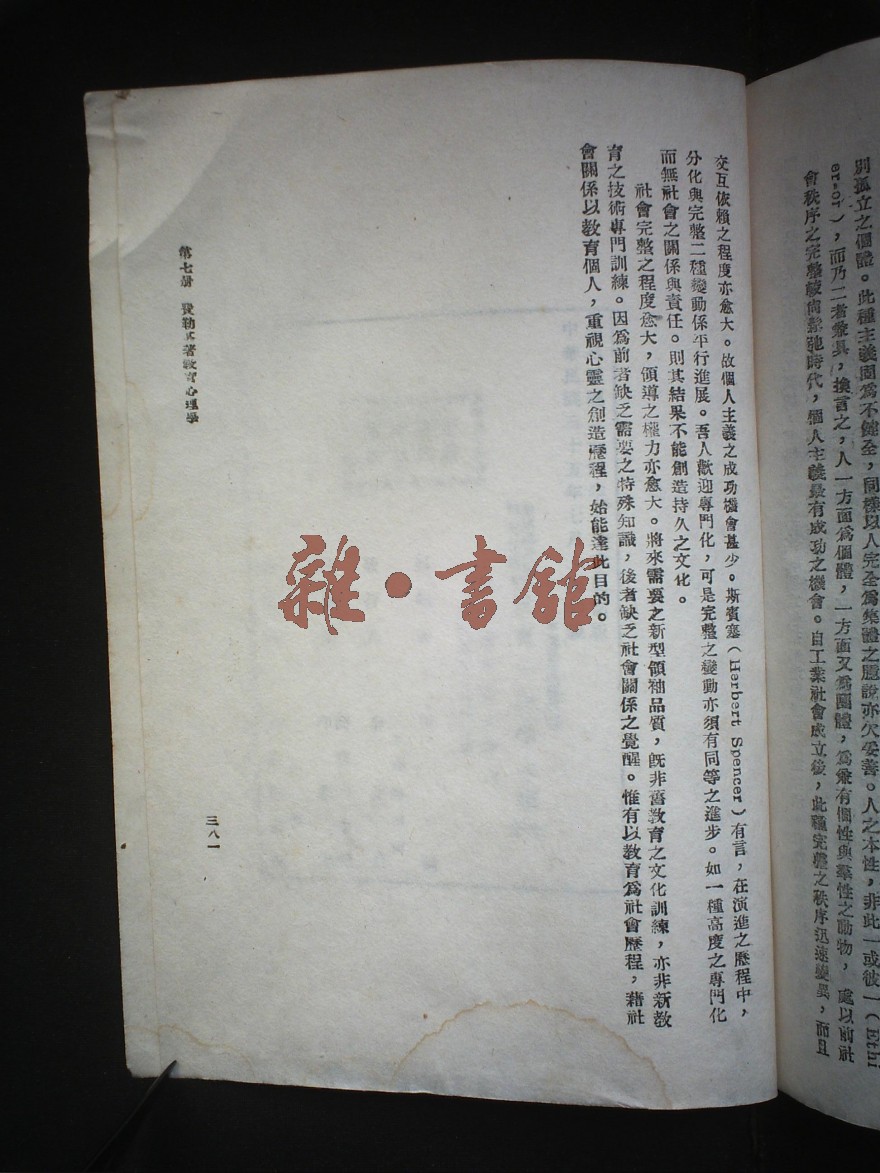 別孤立之個體。此種主義固爲不健全,同樣以人完全爲集體之臆說亦欠妥善。人之本性,非此一或彼一(Eithi
er-or),而乃二者兼具,換言之,人一方面爲個體,一方面又爲團體,爲兼有個性與羣性之動物,處以前社
會秩序之完整較尙鬆弛時代,個人主義最有成功之機會。自工業社會成立後,此種完整之秩序迅速變異,而且
交互依賴之程度亦愈大。故個人主義之成功機會甚少。斯賓塞(Herbert Spencer)有言,在演進之歷程中,
分化與完整二種變動係平行進展。吾人歡迎專門化,可是完整之變動亦須有同等之進步。如一種高度之專門化
而無社會之關係與責任。則其結果不能創造持久之文化。
社會完整之程度愈大,領導之權力亦愈大。將來需要之新型領袖品質,旣非舊教育之文化訓練,亦非新教
育之技術專門訓練。因爲前者缺乏需要之特殊知識,後者缺乏社會關係之覺醒。惟有以教育爲社會歷程,藉社
會關係以教育個人,重視心靈之創造歷程,始能達此目的。
第七册 費勒某著教育心理學
三八一
雜·書館